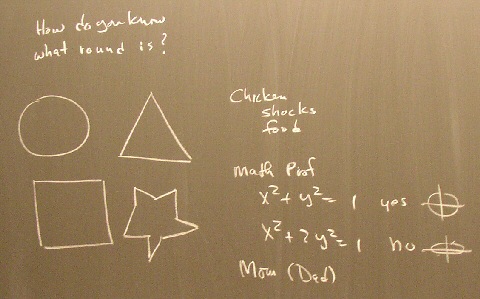 How do you know
what round is?
Chicken
shocks
food
Math Prof
x²+y²=1 yes
x²+2y²=1 no
Mom (Dad)